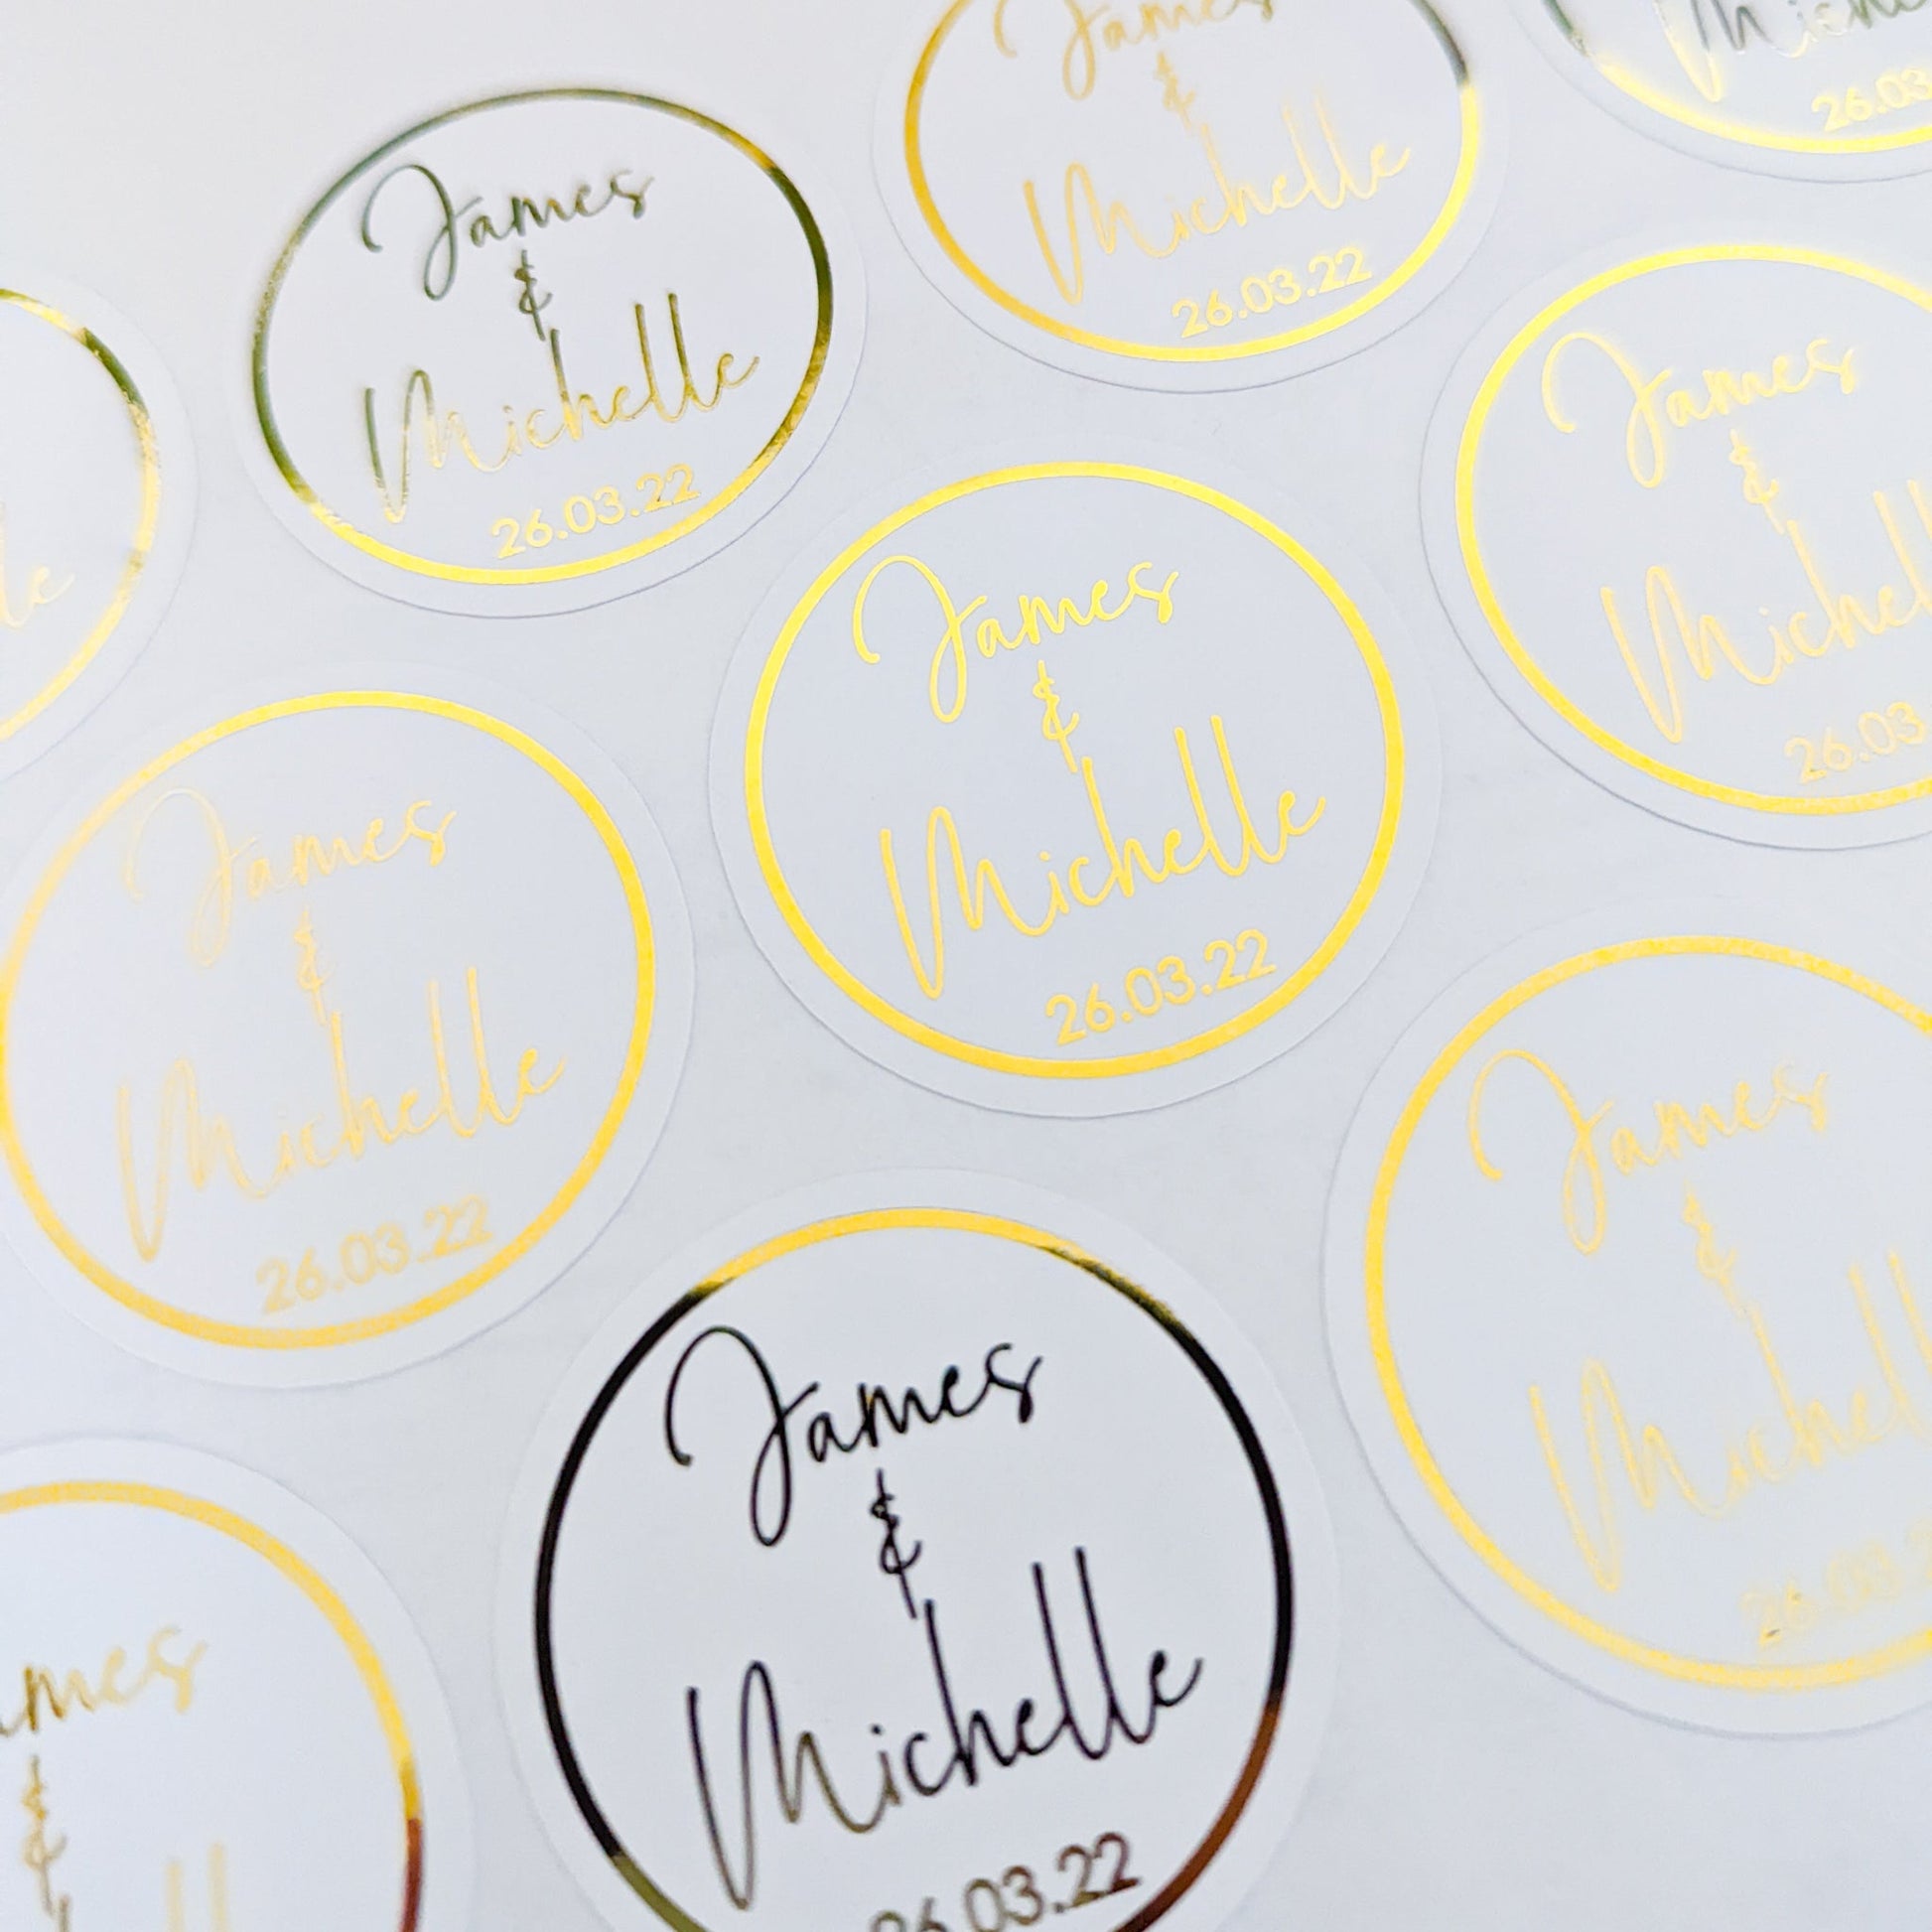 James
&
Michelle
26.03.22
26.03
James
&
Michelle
26.03.22
James
&
Michelle
26.03
James
&
Michelle
26.03.22
James
&
Michelle
26.03.22
James
&
Michelle
James
&
Michelle
26.03.22
&